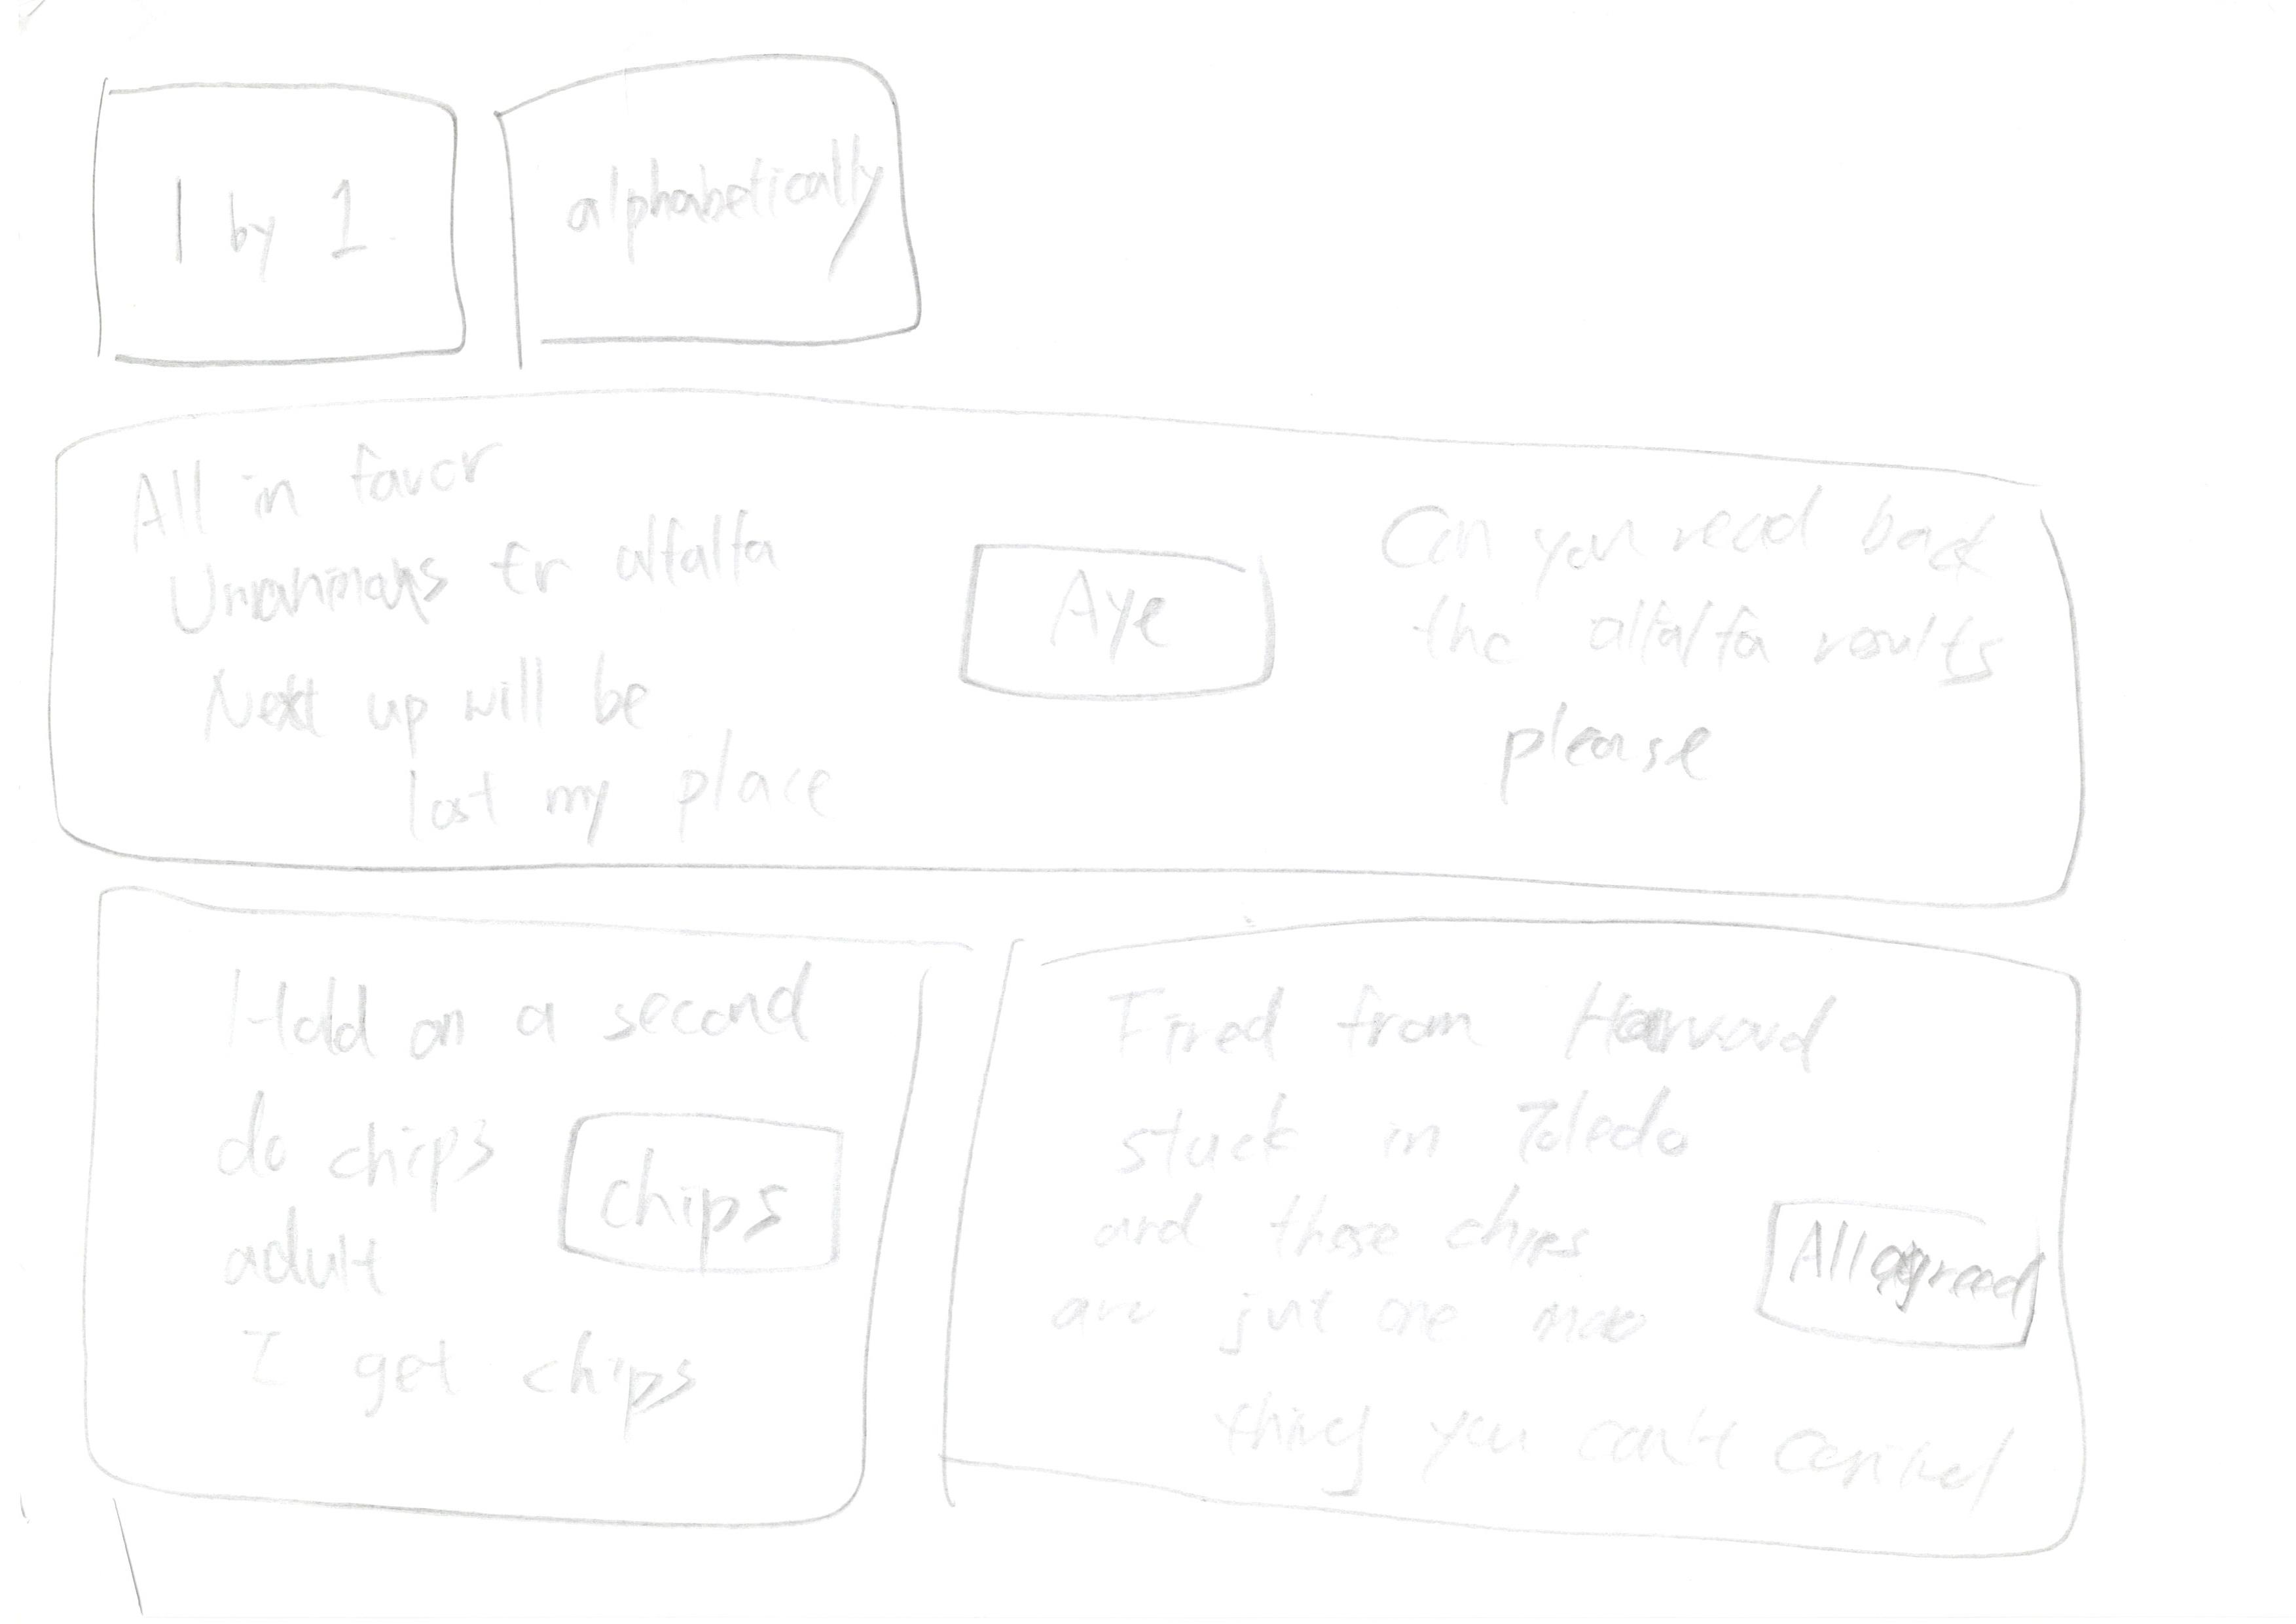 1 by 1
alphabetically
All in favor
Unanimous for alfalfa
Next up will be
lost my place
Aye
Can you read back
the alfalfa results
please
Hold on a second
do chips
adult
I get chips
chips
Fired from Harvard
stuck in Toledo
and those chips
are just one more
thing you can't control
All agreed